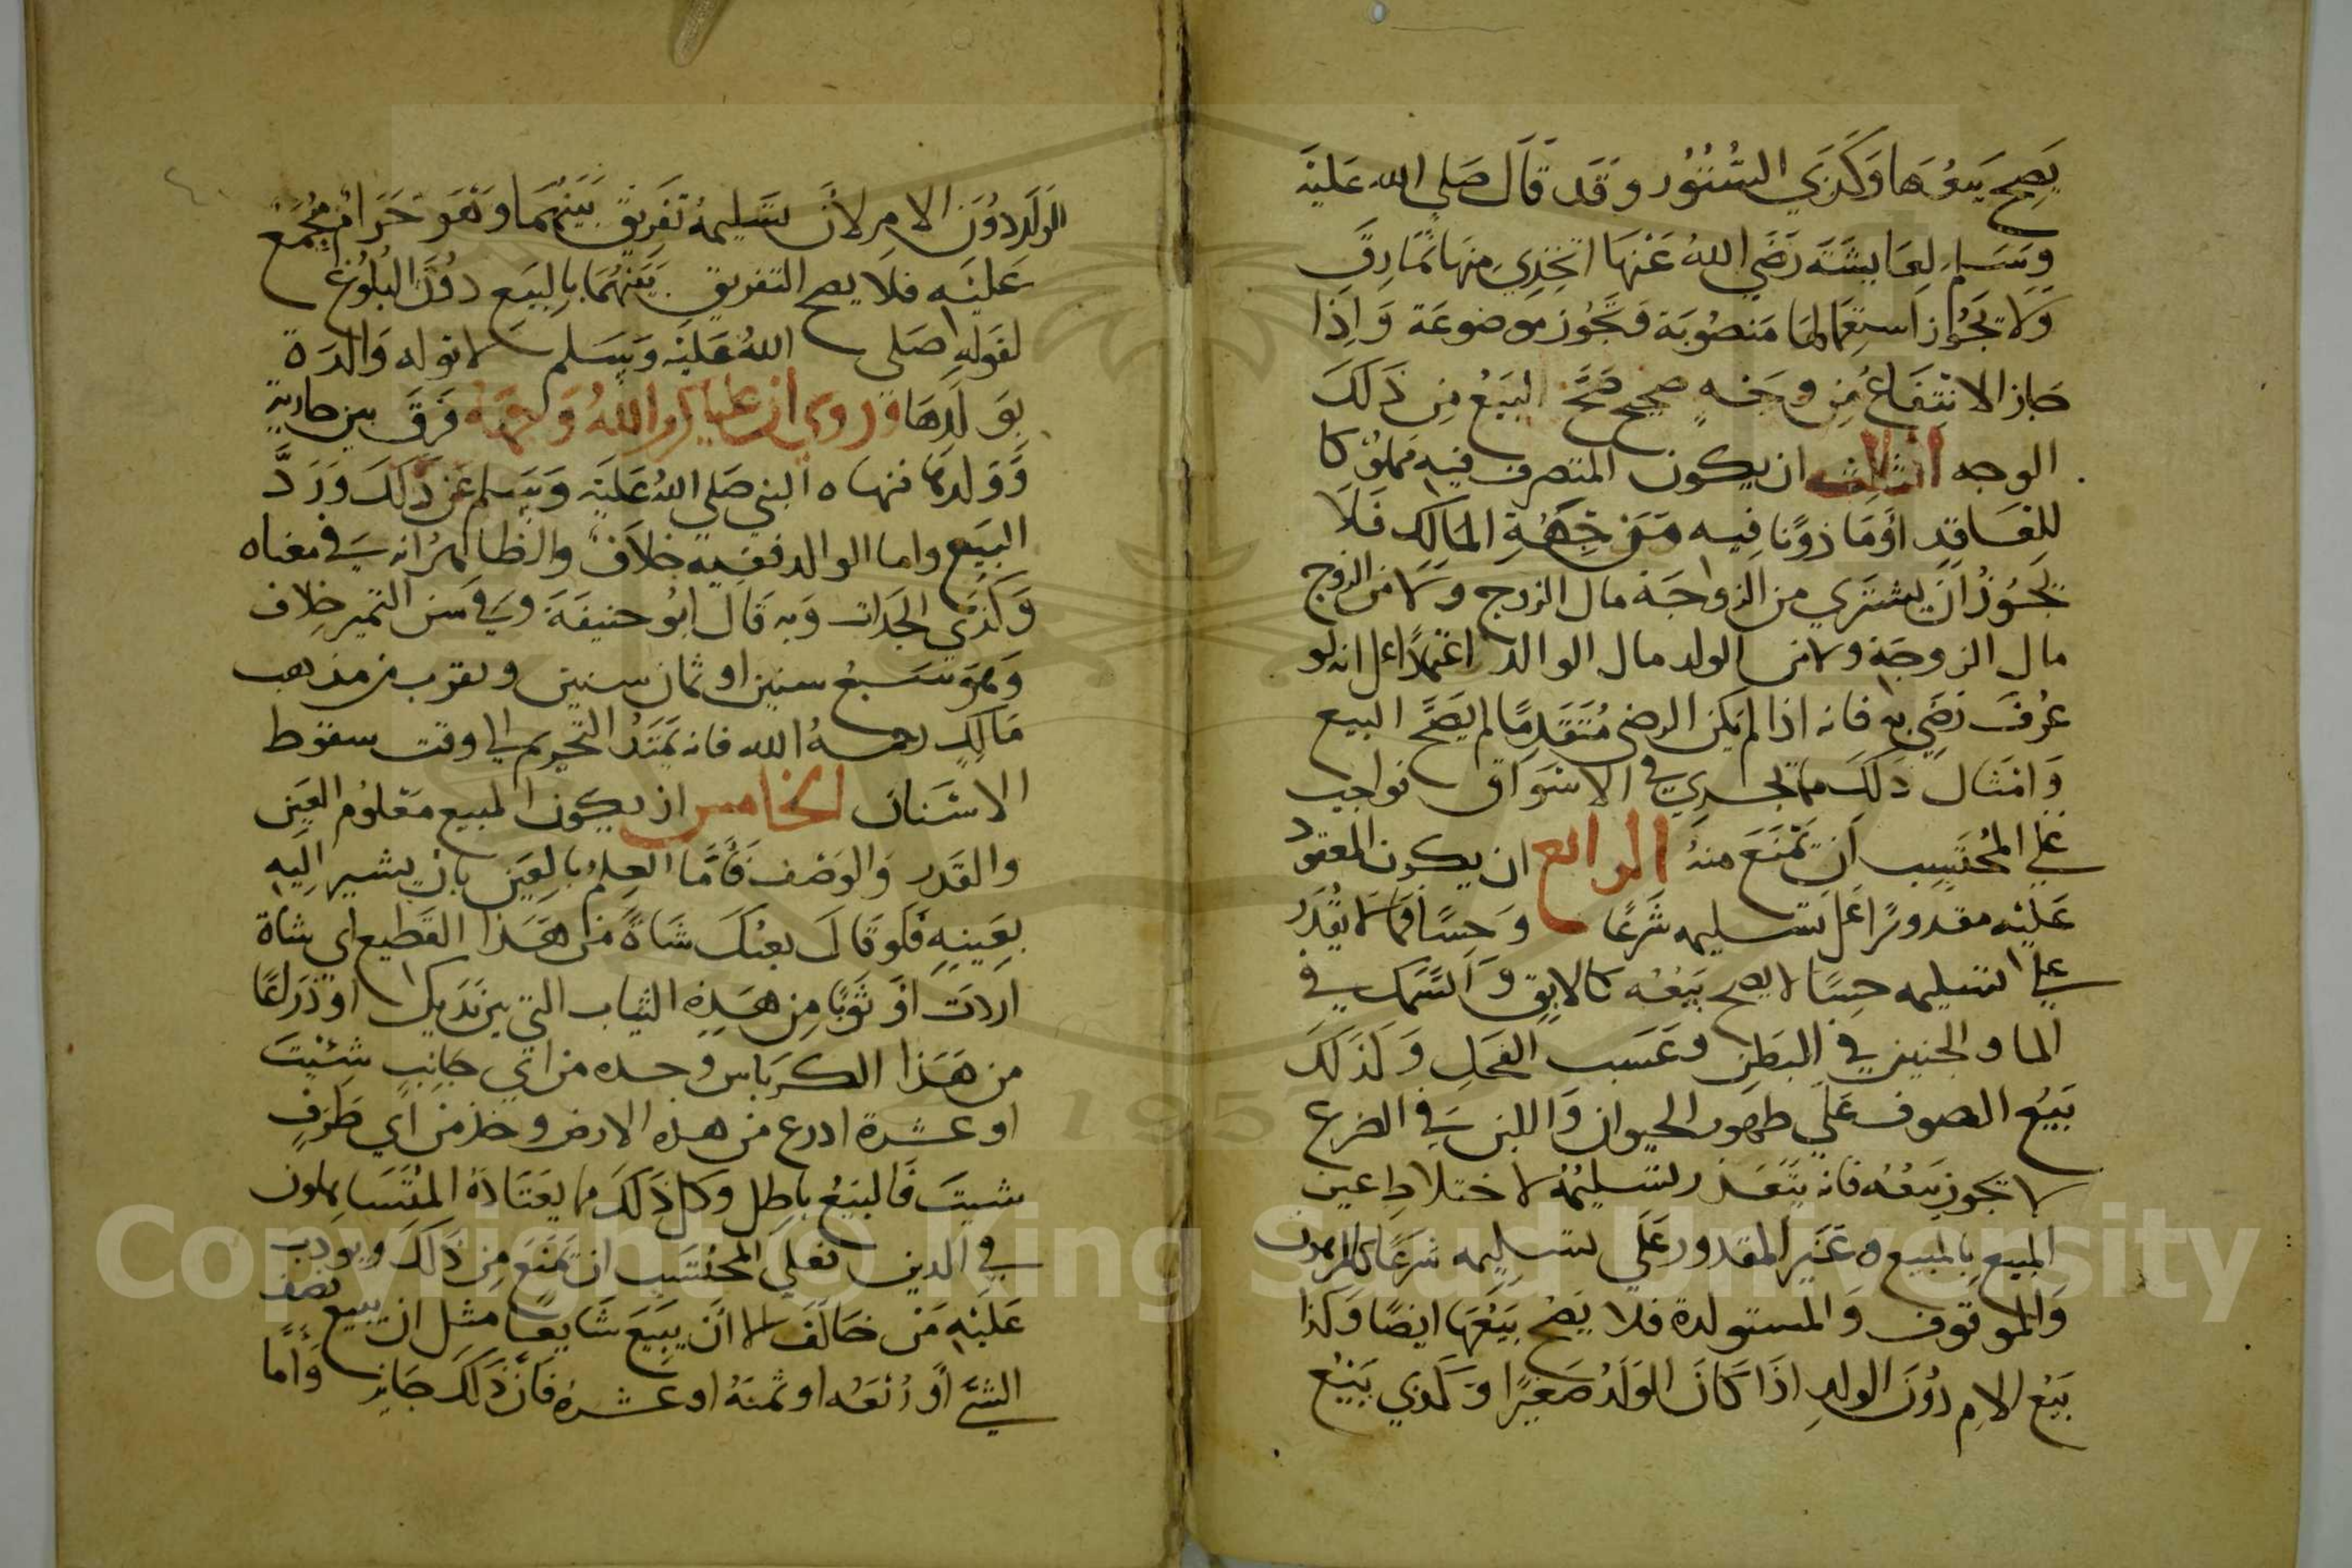 يَصِح بَيعُهَا وَكَذَي السُّتُور وَقَد قَالَ صَلي الله عَلَيْه
وَسَلم لِعَايشَة رَضَي اللهُ عَنْهَا اتخِذِي مِنهَا نَمَارِق
وَلَا يَجُوز استِعمَالهَا مَنصُوبَة وَتجُوز موضوعَة وَاِذَا
جَاز الانتِفَاعُ مِن وجَهٍ صحيح صَحَّ البَيعُ مِن ذَلَكَ
الوجه الثالث ان يكون المتصرف فيه مملوكا
للعَاقِدِ أوْمَاذونًا فِيه مَن جِهَةِ المَالك فَلَا
يَجُوزُ انْ يشتري من الزواجَة مال الزوج وَلَا من الزوج
مال الزوجَة ولا من الولد مال الوالد اعتمادًا على انه لو
عُرفَ رَضَي به فانه اذا لم يكن الرضى مُتَقَدِمًا لم يَصَحَّ البيع
وَامثَال ذَلَكَ مما تجري في الاسْوَاق فواجب
عَلي المُحتَسِب اَن يَمْنَعَ منهُ الرابع ان يكون المعقود
عَليْه مقدورًا عَلى تسليمه شَرعًا وَحِسًا فمَا لا يقْدَر
عَلي تسليمه حِسًا لا يصح بَيْعُه كالابِقِ وَالسَّمك في
الما والجنين في البَطنِ وعَسب الفَحَلِ وَكَذلَكَ
بَيْعُ الصوف عَلَي ظهور الحيوان وَاللبن فَي الضرع
لا تجوز بَيْعُه فانه يَتَعَذر تسليمُهُ لاختلاط عين
المبيع بالمبيع وَغَيْر المقدور عَلَي تسليمه شَرعًا كالمرهون
وَالموقوف وَالمستولدة فلا يَصْح بَيْعُهَا ايضًا وَكذا
بَيْع الامِ دُونَ الولدِ اذَا كَانَ الوَلَدُ صَغيرًا وَكَذي بَيْعُ
الوَلَدِ دوُنَ الامِ لانَ تسَليمهُ تَفَرِيق بَيَنهُمَا وَهُوَ حَرَام مُجْمَع
عَلَيْه فلَا يصح التفريق بَيَنهُمَا بِالبيَع دوُنَ البُلوُغ
لقولِهِ صَلي اللهُ عَلَيَه وَسَلم لا توله وَالدَة
بِوَلَدِهَا وروى ان عليا كرم اللهُ وَجهَهُ فَرَّقَ بين جارية
وَوَلدِهَا فنهاه النبي صَلي اللهُ عَلَيَه وَسَلم عَن ذَلَكَ وَرَدَّ
البَيَع واما الوالد ففيه خلاَف وَالظاهرُ انه فَي معناه
وَكذي الجَدات وَبه قَال ابُو حنيفَة وفَي سَن التميز خِلاف
وَهَوَ سَبعُ سنين او ثمان سنين ويقرب من مذهب
مَالكٍ رحمهُ الله فانه يَمتَدُ التحريم الي وقت سقوط
الاسْنَان الخامس ان يكون المبيع مَعْلوُم العَيَن
والقَدر وَالوَصْف فَأَمَّا العِلمُ بالعَيَن بان يشير اليَهِ
بِعَينِهِ فَلَو قَالَ بعتكَ شَاةً مَن هَذا القَطيع اي شاة
اردَت اوْ ثَوبًا مِن هَذِهِ الثياب التي بين يَدَيكَ او ذَرَاعًا
من هَذا الكرَباس وخذه من ايَ جَانِبٍ شِئتَ
او عشرة اذرع من هذه الارض وخذ من ايَ طَرفٍ
شيت فَالبيَعُ باطِل وكل ذَلَكَ مما يَعَتَادَهُ المُتَسَاهلون
في الدين فعلي المحتَسِب ان يَمْنَع مِن ذَلَكَ ويودب
عَلَيْهِ مَن خَالَفَ الا أنَ يبَيعَ شَايعًا مثل ان يبيع نصف
الشيَّ أو رُبعَه او ثمنهُ او عشرهُ فَان ذَلَكَ جَايز وَأمَّا